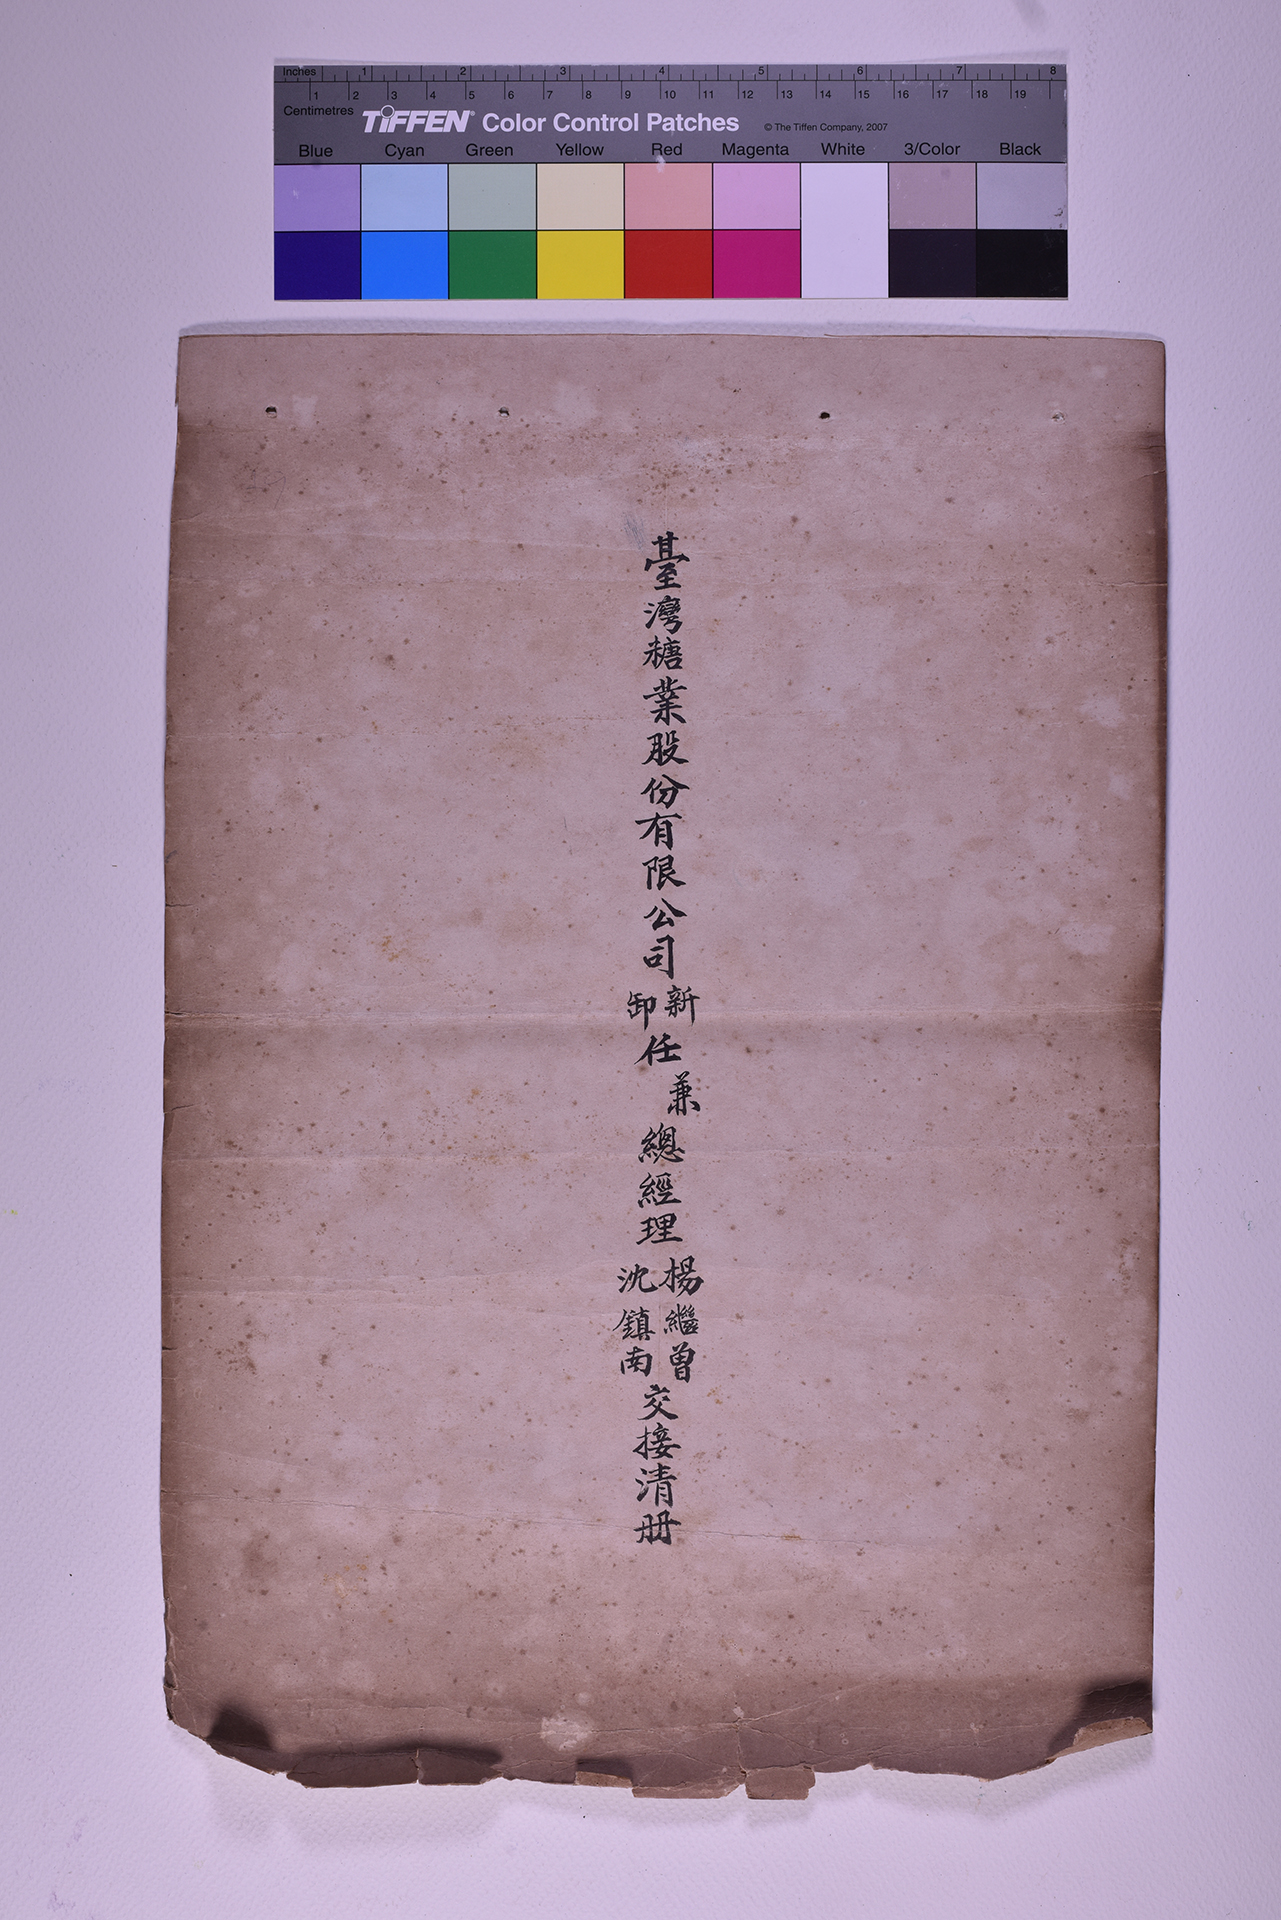 Inches 1 2 3 4 5 6 7 8
Centimetres 1 2 3 4 5 6 7 8 9 10 11 12 13 14 15 16 17 18 19
TIFFEN® Color Control Patches © The Tiffen Company, 2007
Blue Cyan Green Yellow Red Magenta White 3/Color Black
臺灣糖業股份有限公司
新
卸
任
兼
總經理
楊繼曾
沈鎮南
交接清册